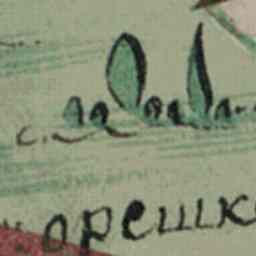 орешк